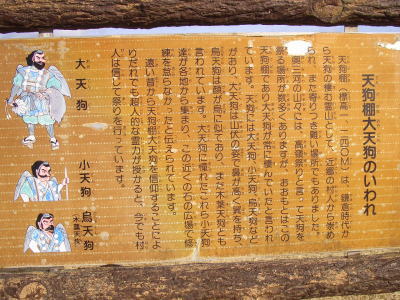 天狗棚大天狗のいわれ
天狗棚(標高一、二四〇M)は、鎌倉時代か
ら天狗の棲む霊山として、近郷の村人から崇め
られ、また寄りつき難い場所でもありました。
奥三河の山々には、高嶺祭りと言って天狗を
祭る場所が数多くありますが、おおもとはこの
天狗棚であり大天狗が常に棲んでいたと言われ
ています。天狗には大天狗、小天狗、烏天狗など
があり、大天狗は山伏の姿で鼻が高く翼を持ち、
烏天狗は顔が烏に似ており、また木葉天狗とも
言われています。大天狗に憧れたこれら小天狗
達が各地から集まり、この近くの石の広場で修
練を怠らなかったと伝えられています。
遠い昔から天狗棚大天狗を信仰することによ
りだれでも超人的な霊力が授かると、今でも村
人は信じて祭りを行っています。
大天狗
小天狗
烏天狗
(木葉天狗)